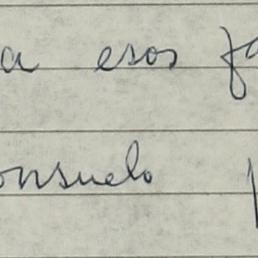 a esos fa
onsuelo